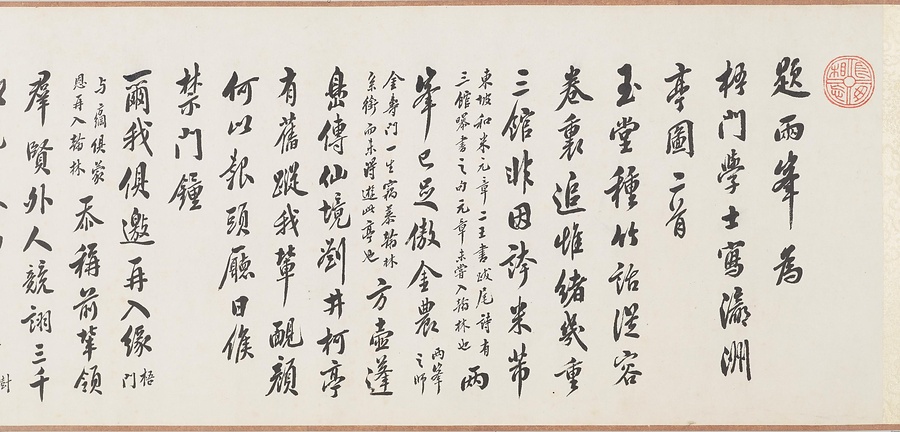 題兩峯為
梧門學士寫瀛洲
亭圖二首
玉堂種竹話從容
卷裏追惟緒幾重
三館非因誇米芾
東坡和米元章二王書跋尾詩有
三館曝書之句元章未嘗入翰林也
兩
峯已足傲金農
兩峯
之師
金壽門一生竊慕翰林
系銜而未得遊此亭也
方壺蓬
島傳仙境劉井柯亭
有舊蹤我輩靦顏
何以報頭廳日候
禁門鐘
爾我俱邀再入緣
梧
門
与俱蒙
恩再入翰林
忝稱前輩領
羣賢外人競詡三千
樹
長毋相忘